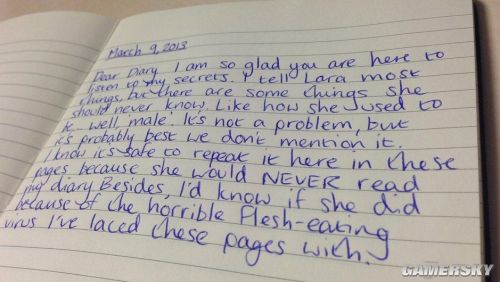 March 9, 2013
Dear Diary I am so glad you are here to
listen to my secrets. I tell Lara most
things, but there are some things she
should never know. Like how she used to
be... well 'male'. It's not a problem, but
it's probably best we don't mention it.
I know it's safe to repeat it here in these
pages because she would NEVER read
my diary. Besides, I'd know if she did
because of the horrible flesh-eating
virus I've laced these pages with.
GAMERSKY